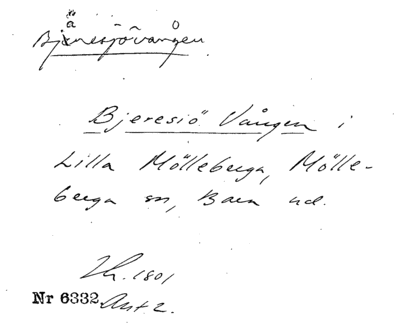 Bjäresjövången
Bjeresiö Vången i
Lilla Mölleberga, Mölle-
berga sn, Bara hd.
1801
Nr 6332 Akt 2.